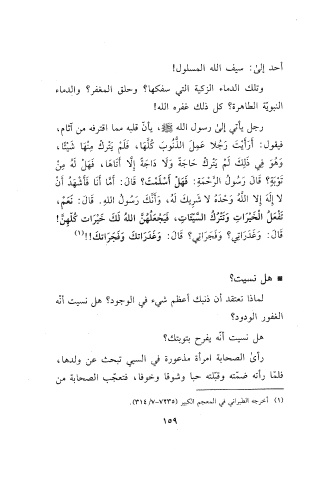 أحد إلىٰ: سيف الله المسلول!
وتلك الدماء الزكية التي سفكها؟ وحلق المغفر؟ والدماء
النبويّة الطاهرة؟ كل ذلك غفره الله!
رجل يأتي إلىٰ رسول الله ﷺ، يأنّ قلبه مما اقترفه من آثام،
فيقول: أَرَأَيْتَ رَجُلًا عَمِلَ الذُّنُوبَ كُلَّهَا، فَلَمْ يَتْرُكْ مِنْهَا شَيْئًا،
وَهُوَ فِي ذَلِكَ لَمْ يَتْرُكْ حَاجَةً وَلَا دَاجَةً إِلَّا أَتَاهَا، فَهَلْ لَهُ مِنْ
تَوْبَةٍ؟ قَالَ رَسُولُ الرَّحْمَةِ: فَهَلْ أَسْلَمْتَ؟ قَالَ: أَمَّا أَنَا فَأَشْهَدُ أَنْ
لَا إِلَهَ إِلَّا اللَّهُ وَحْدَهُ لَا شَرِيكَ لَهُ، وَأَنَّكَ رَسُولُ اللهِ. قَالَ: نَعَمْ،
تَفْعَلُ الْخَيْرَاتِ وَتَتْرُكُ السَّيِّئَاتِ، فَيَجْعَلُهُنَّ اللهُ لَكَ خَيْرَاتٍ كُلَّهُنَّ!
قَالَ: وَغَدَرَاتِي؟ وَفَجَرَاتِي؟ قَالَ: وَغَدَرَاتكَ وَفَجَرَاتكَ!!(١)
▪ هل نسيت؟
لماذا تعتقد أن ذنبك أعظم شيء في الوجود؟ هل نسيت أنّه
الغفور الودود؟
هل نسيت أنّه يفرح بتوبتك؟
رأىٰ الصحابة امرأة مذعورة في السبي تبحث عن ولدها،
فلمّا رأته ضمّته وقبّلته حبا وشوقا وخوفا، فتعجّب الصحابة من
(١) أخرجه الطبراني في المعجم الكبير (٧٢٣٥-٣١٤/٧).
١٥٩